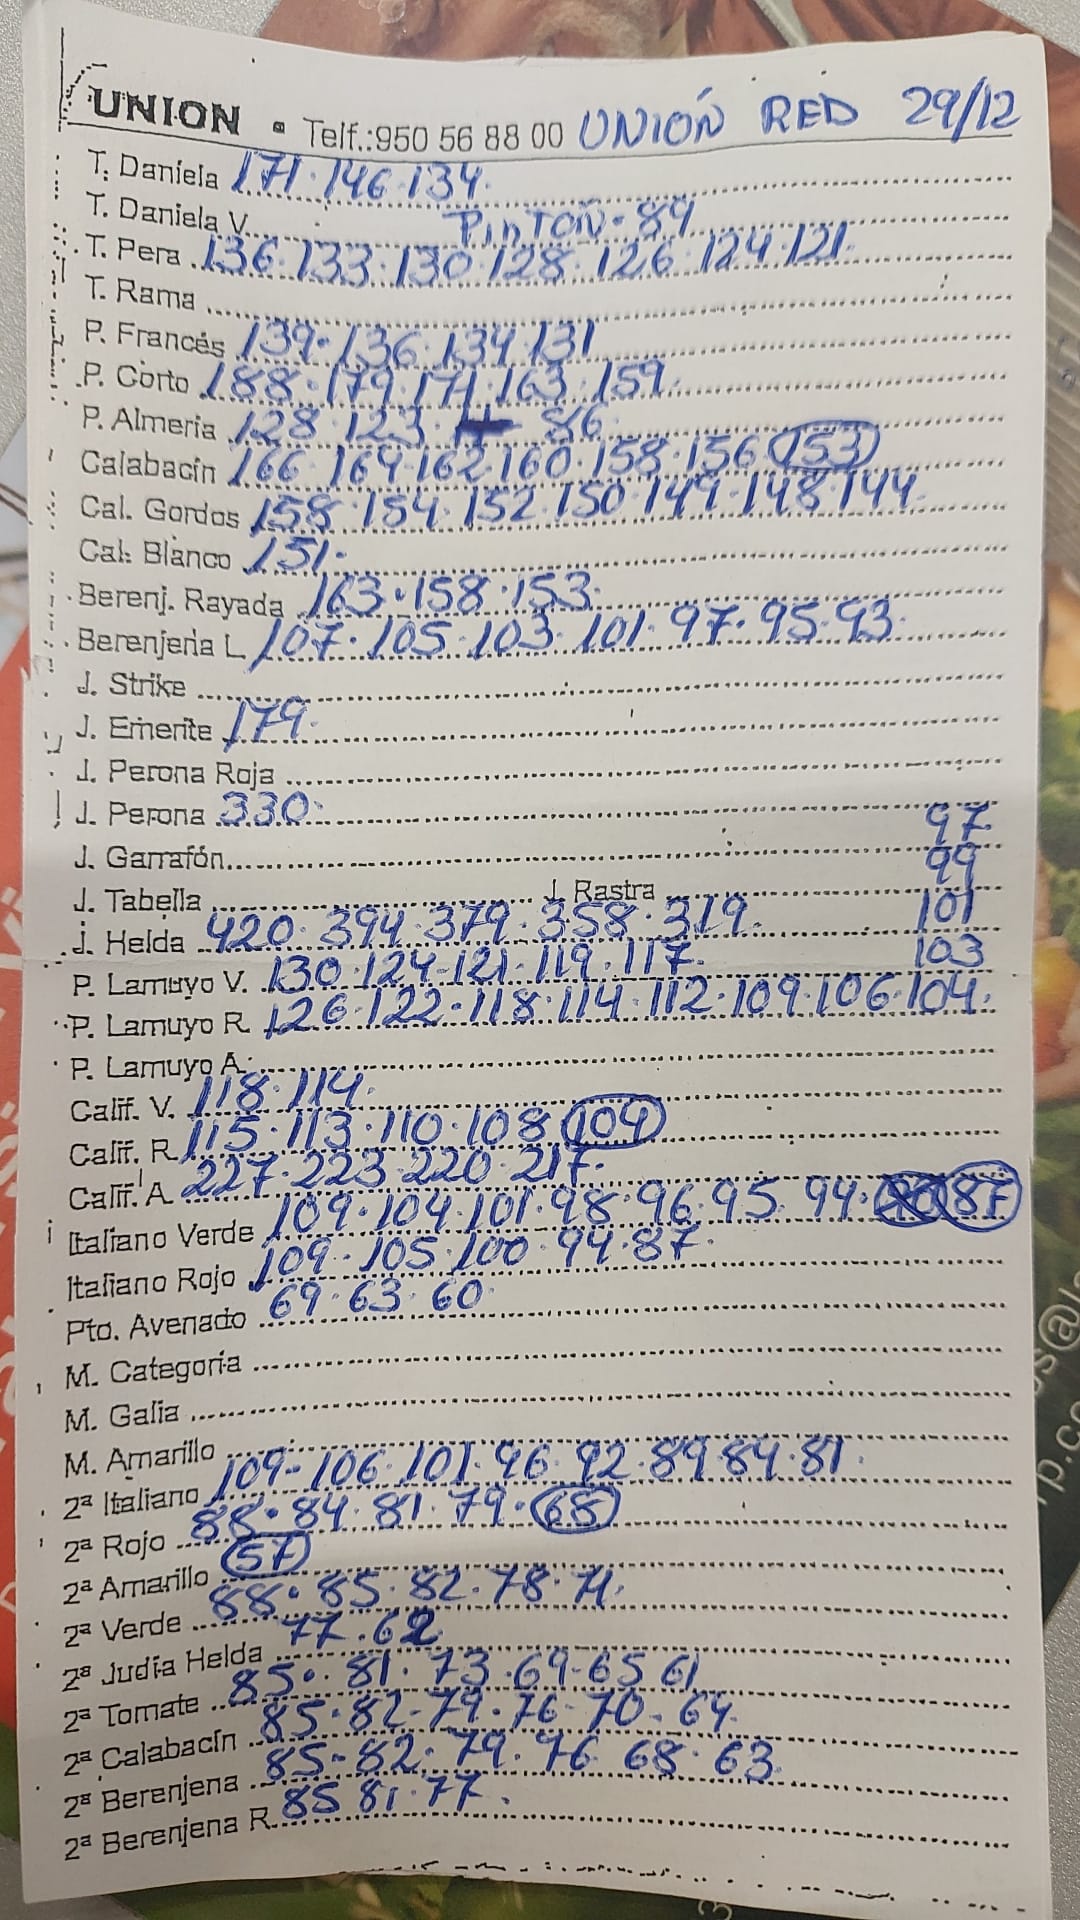 UNION • Telf.:950 56 88 00 UNIÓN RED 29/12
T. Daniela 171·146·134·
T. Daniela V. PINTON·89
T. Pera 136·133·130·128·126·124·121·
T. Rama
P. Francés 139·136·134·131
P. Corto 188·179·171·163·159·
P. Almeria 128·123· 86
Calabacín 166·164·162·160·158·156 153
Cal. Gordos 158·154·152·150·149·148·144
Cal. Blanco 151·
Berenj. Rayada 163·158·153
Berenjena L 107·105·103·101·97·95·93
J. Strike
J. Emerite 179·
J. Perona Roja
J. Perona 330· 97
J. Garrafón 99
J. Tabella J. Rastra 101
J. Helda 420·394·379·358·319· 103
P. Lamuyo V. 130·124·121·119·117·
P. Lamuyo R. 126·122·118·114·112·109·106·104·
P. Lamuyo A.
Calif. V. 118·114·
Calif. R. 115·113·110·108 104
Calif. A. 227·223·220·217·
Italiano Verde 109·104·101·98·96·95·94· 87
Italiano Rojo 109·105·100·94·87·
Pto. Avenado 69·63·60
M. Categoría
M. Galia
M. Amarillo
2ª Italiano 109·106·101·96·92·89·84·81·
2ª Rojo 88·84·81·79· 68
2ª Amarillo 57
2ª Verde 88·85·82·78·71·
2ª Judía Helda 77·62
2ª Tomate 85·81·73·69·65 61
2ª Calabacín 85·82·79·76·70·64·
2ª Berenjena 85·82·79·76 68·63
2ª Berenjena R. 85 81·77·